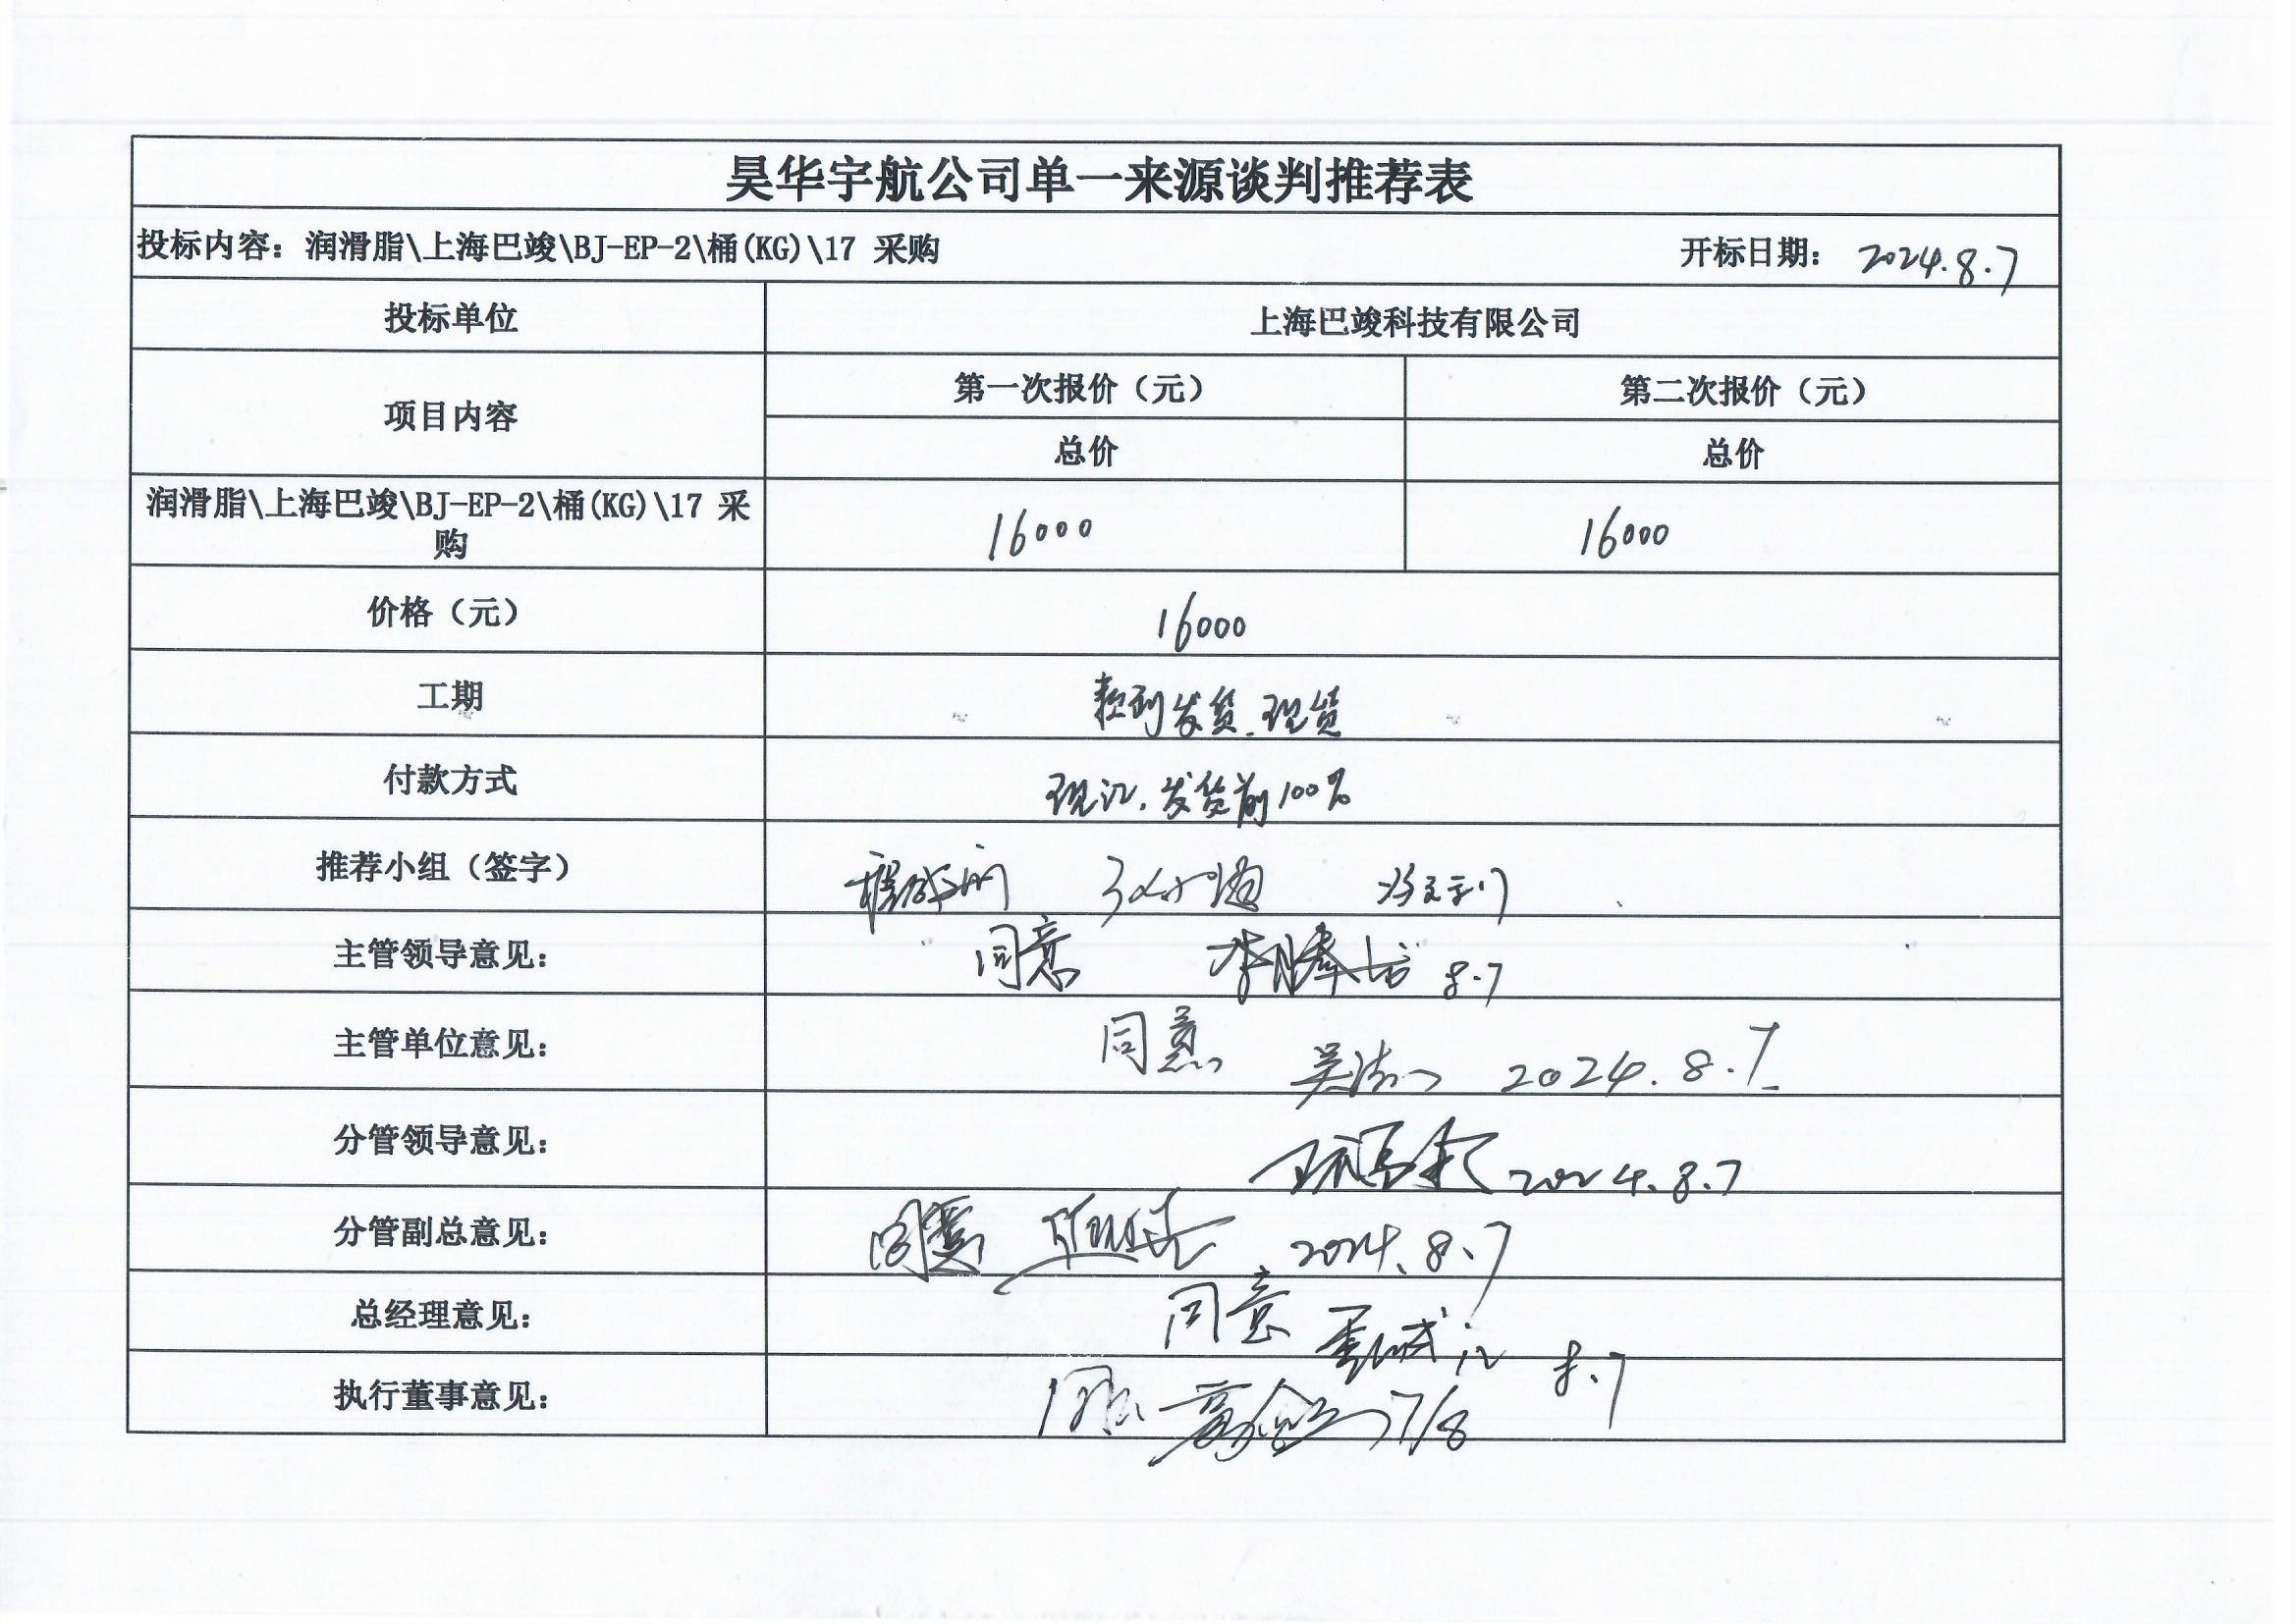 昊华宇航公司单一来源谈判推荐表
投标内容：润滑脂\上海巴竣\BJ-EP-2\桶(KG)\17 采购 开标日期： 2024.8.7
投标单位 上海巴竣科技有限公司
项目内容 第一次报价（元） 第二次报价（元）
总价 总价
润滑脂\上海巴竣\BJ-EP-2\桶(KG)\17 采
购
16000 16000
价格（元） 16000
工期 款到发货.现货
付款方式 现汇,发货前100%
推荐小组（签字）
主管领导意见： 同意 8.7
主管单位意见： 同意 2024.8.7
分管领导意见： 2024.8.7
分管副总意见： 同意 2024.8.7
总经理意见： 同意 8.7
执行董事意见： 同意 7/8